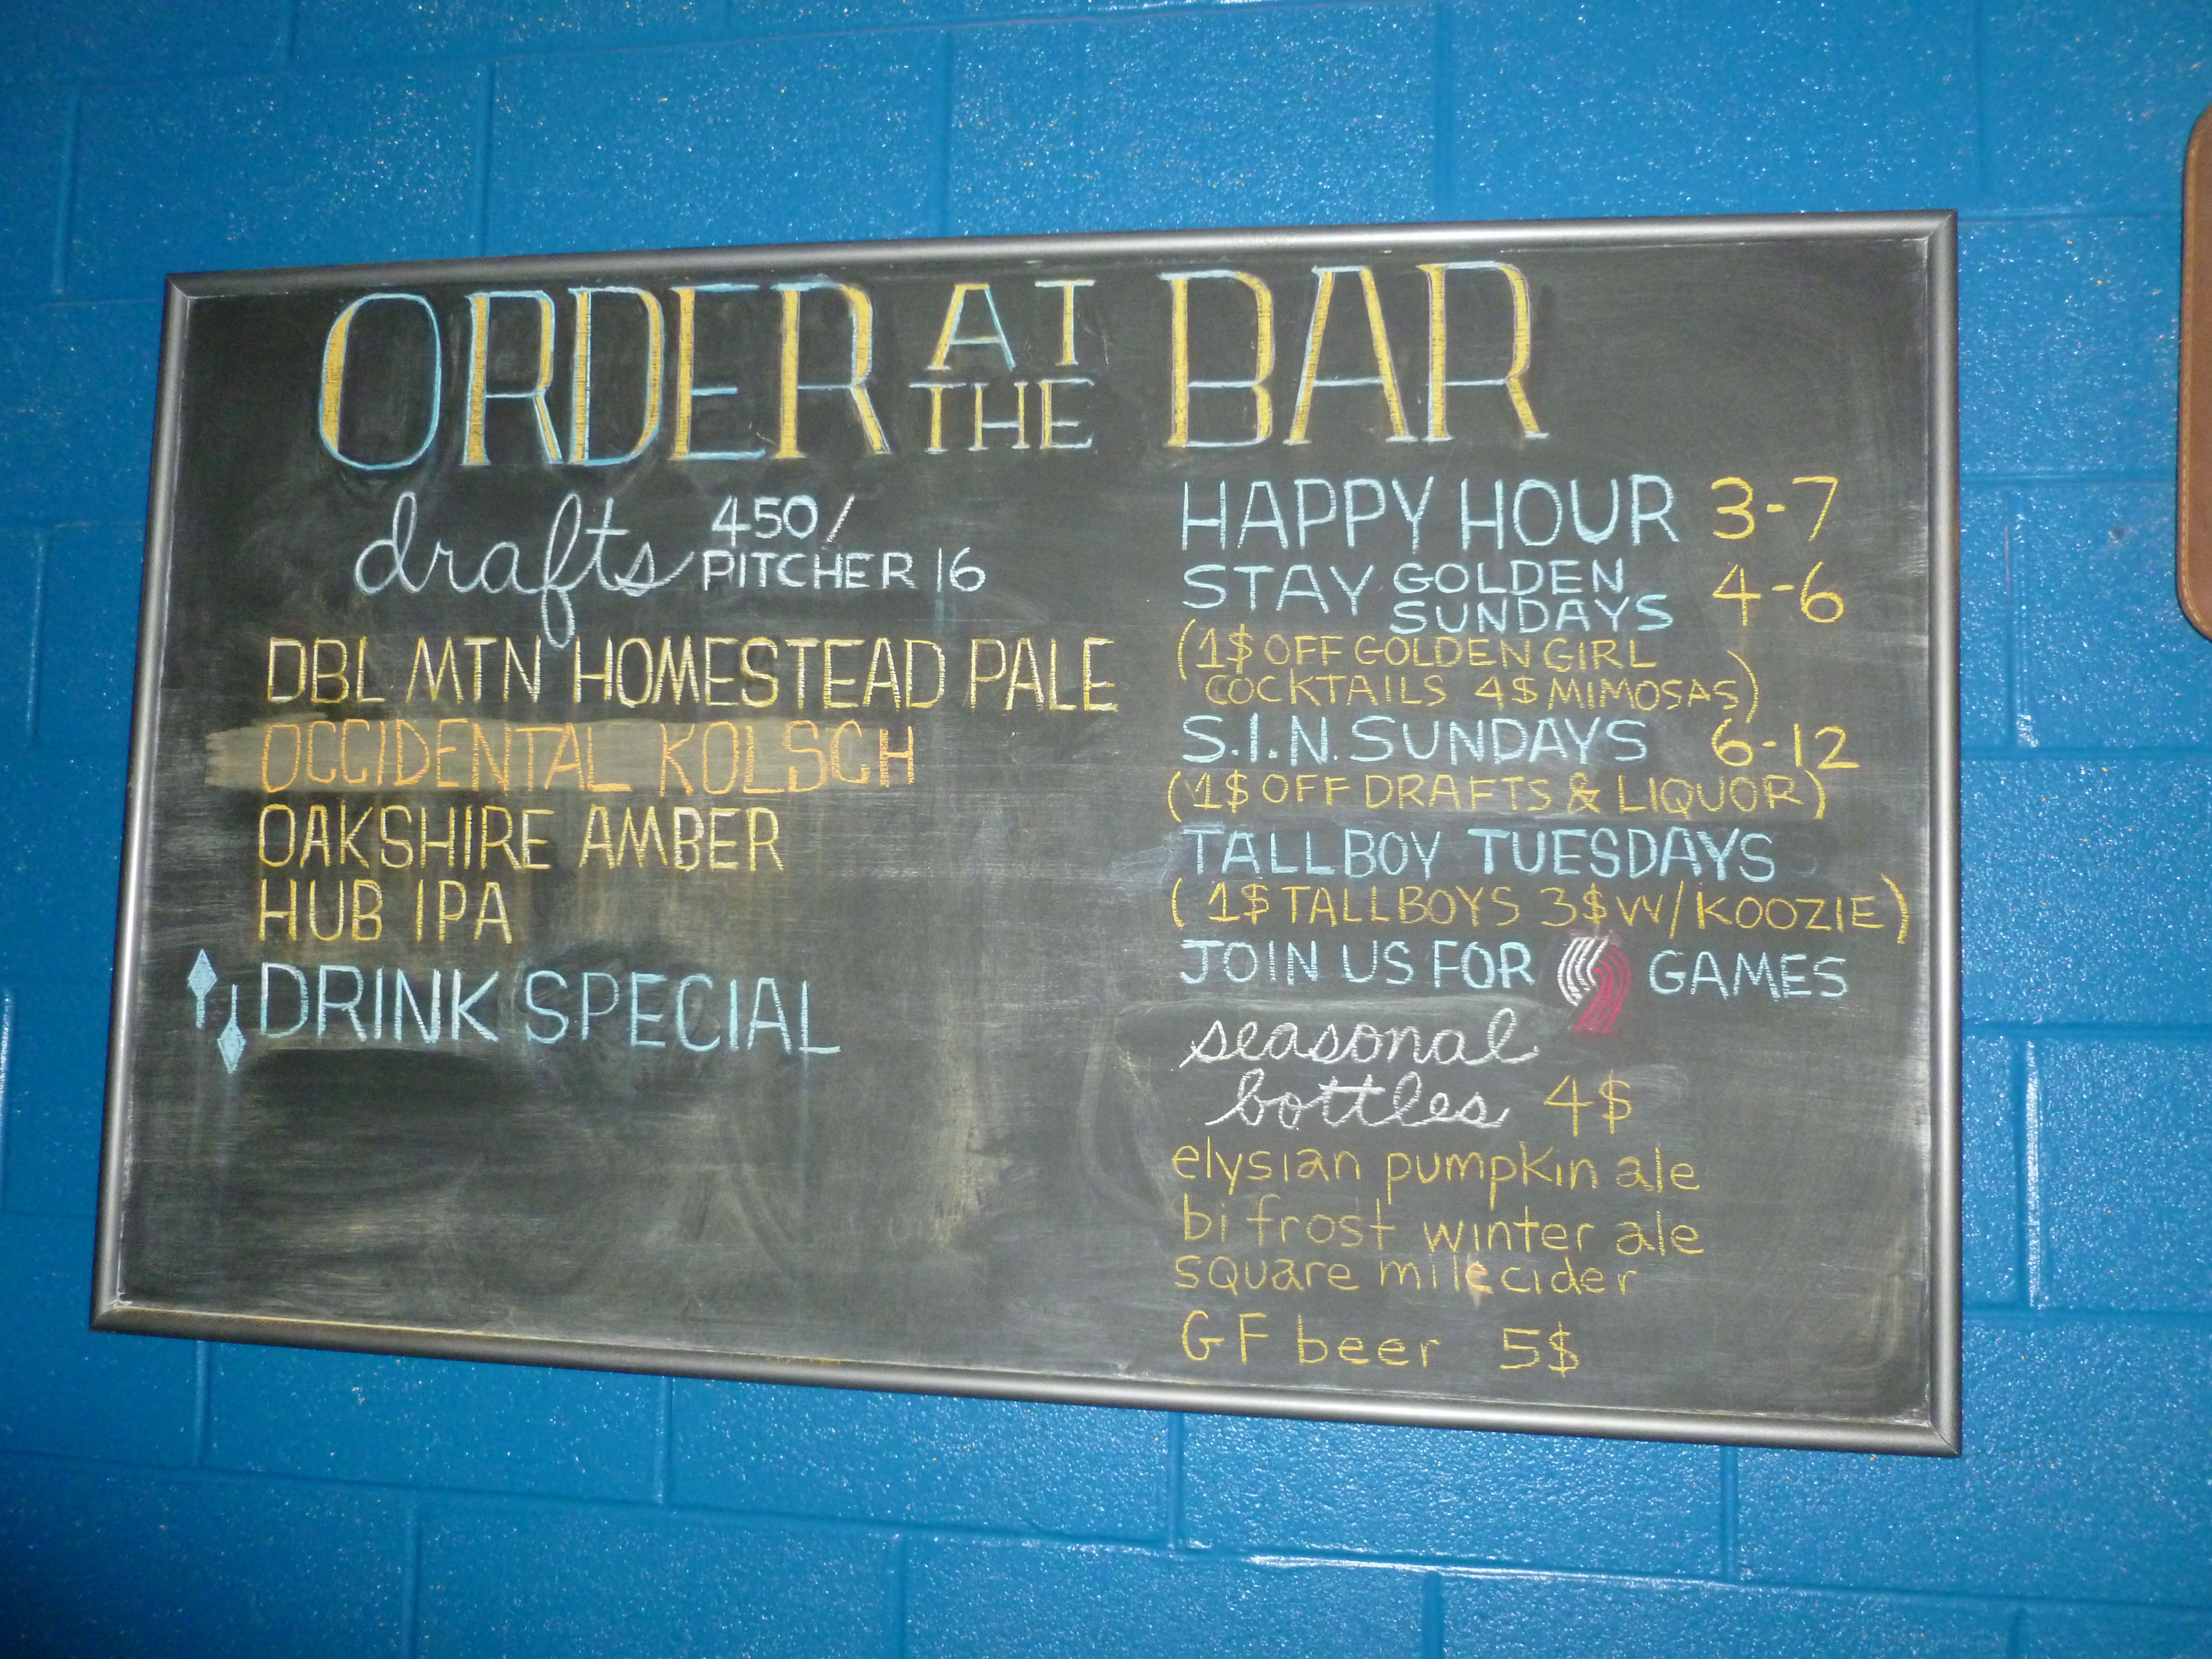 ORDER AT THE BAR
drafts 450/
PITCHER 16
DBL MTN HOMESTEAD PALE
OCCIDENTAL KOLSCH
OAKSHIRE AMBER
HUB IPA
DRINK SPECIAL
HAPPY HOUR 3-7
STAY GOLDEN SUNDAYS 4-6
(1$ OFF GOLDEN GIRL
COCKTAILS 4$ MIMOSAS)
S.I.N. SUNDAYS 6-12
(1$ OFF DRAFTS & LIQUOR)
TALLBOY TUESDAYS
(1$ TALLBOYS 3$ W/KOOZIE)
JOIN US FOR GAMES
seasonal
bottles 4$
elysian pumpkin ale
bifrost winter ale
square mile cider
GF beer 5$